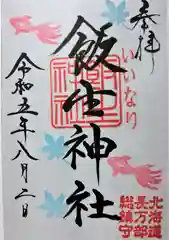 奉拝
いいなり
飯生神社
令和五年八月二日
北海道
長万部
総鎮守